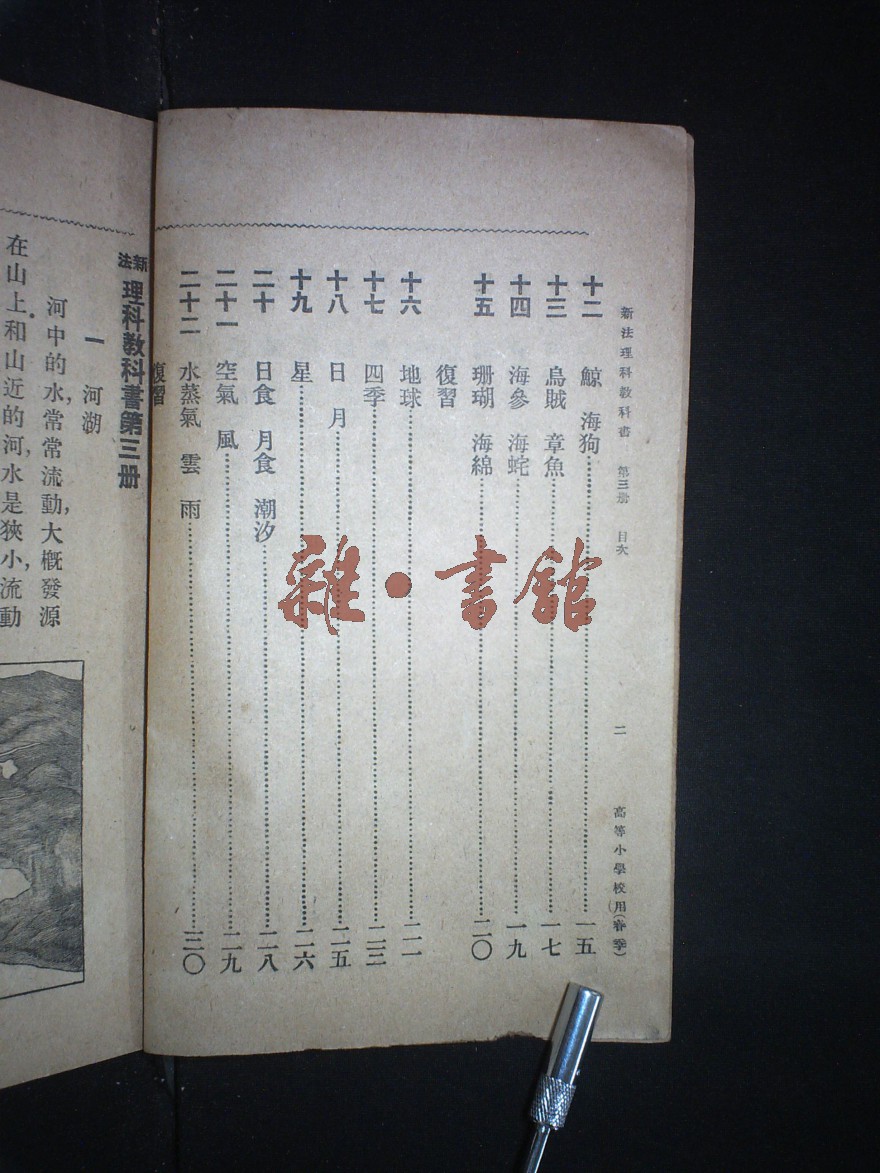 新法理科教科書 第三册 目次 二 高等小學校用(春季)
十二 鯨 海狗 一五
十三 烏賊 章魚 一七
十四 海參 海蛇 一九
十五 珊瑚 海綿 二〇
復習
十六 地球 二一
十七 四季 二三
十八 日 月 二五
十九 星 二六
二十 日食 月食 潮汐 二八
二十一 空氣 風 二九
二十二 水蒸氣 雲 雨 三〇
復習
新法理科教科書第三册
一 河湖
河中的水,常常流動,大概發源
在山上和山近的河,水是狹小,流動
雜·書館